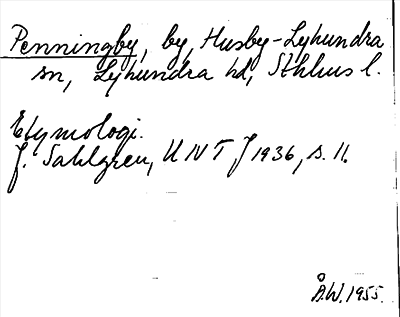 Penningby, by, Husby-Lyhundra
sn, Lyhundra hd, Sthlms l.
Etymologi.
J. Sahlgren, UNT J 1936, s. 11.
Å.W. 1955.